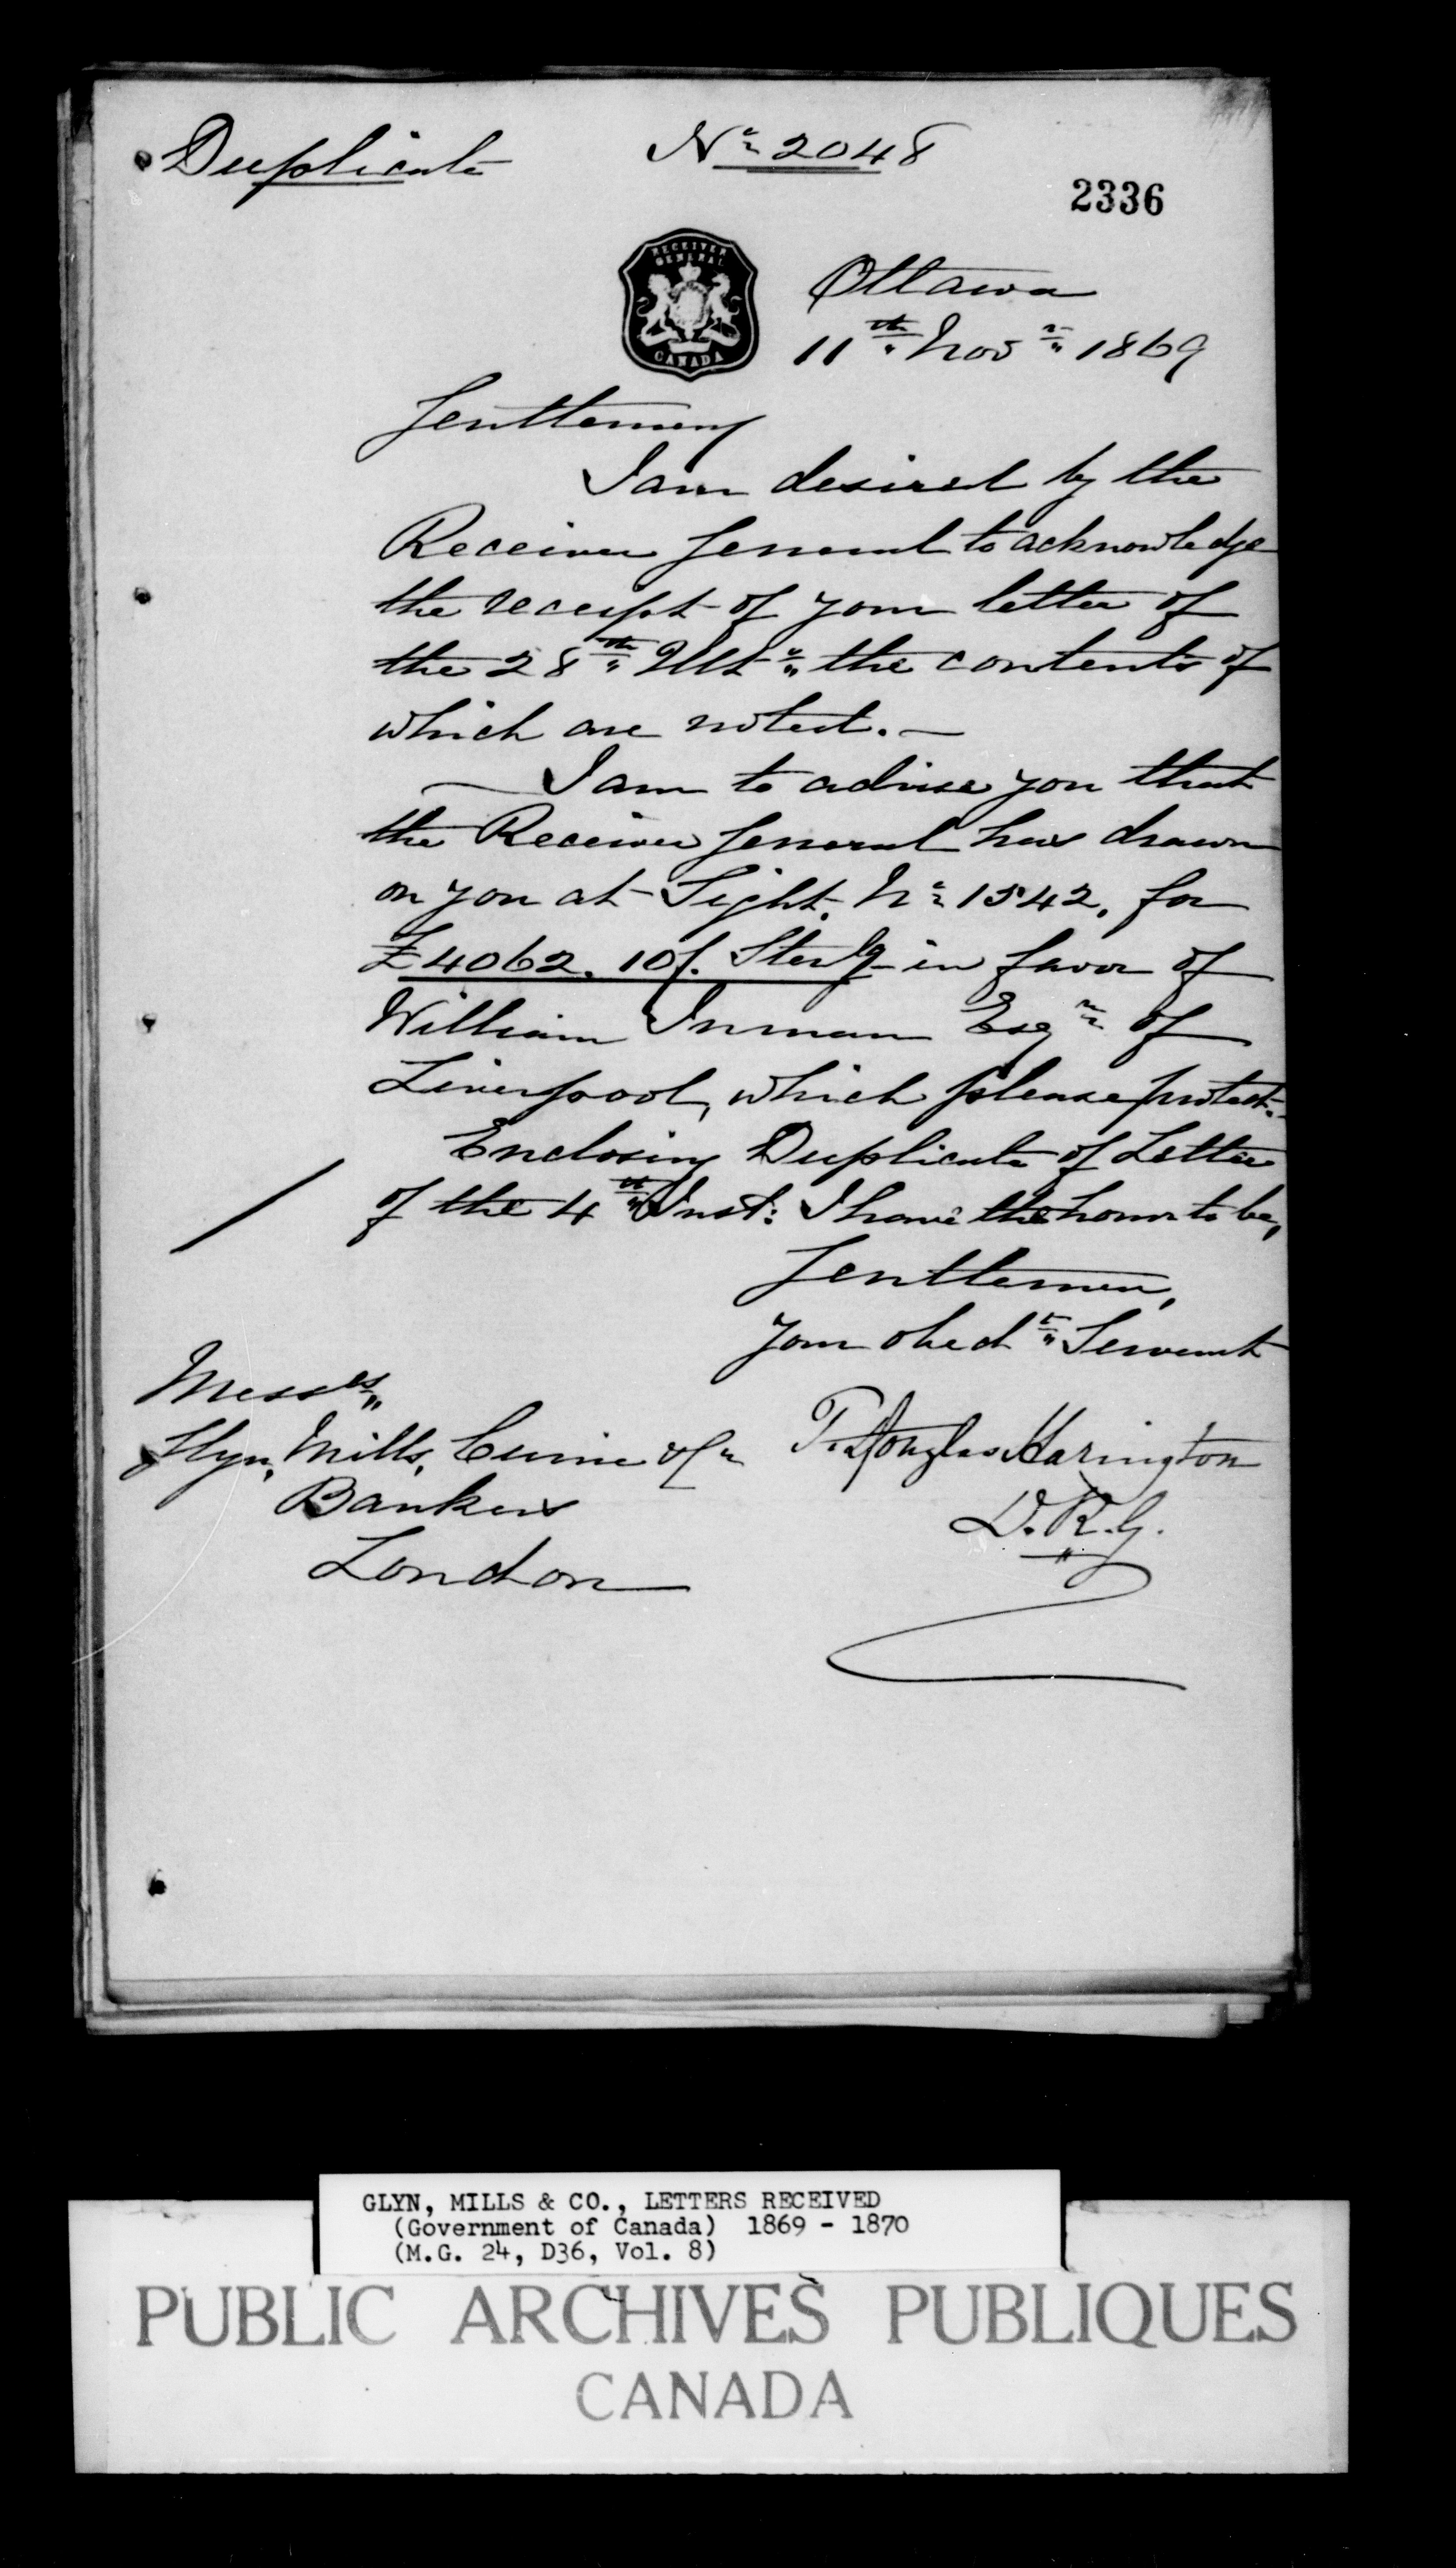 Duplicate
No 2048
2336
RECEIVER
GENERAL
CANADA
Ottawa
11th Novr 1869
Gentlemen
I am desired by the
Receiver General to acknowledge
the receipt of your letter of
the 28th Ulto the contents of
which are noted. —
— I am to advise you that
the Receiver General has drawn
on you at Sight. No 1542, for
£4062. 10/. Sterlg in favor of
William Inman Esqre of
Liverpool, which please protect.
Enclosing Duplicate of Letter
of the 4th Inst: I have the honor to be,
Gentlemen,
your obedt Servant
Messrs
Glyn, Mills, Currie & Co
Bankers
London
T. Douglas Harington
D.R.G.
GLYN, MILLS & CO., LETTERS RECEIVED
(Government of Canada) 1869 - 1870
(M.G. 24, D36, Vol. 8)
PUBLIC ARCHIVES PUBLIQUES
CANADA